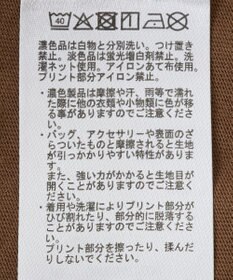 40
濃色品は白物と分別洗い。つけ置き
禁止。淡色は蛍光増白剤禁止。洗
濯ネット使用。アイロンあて布使用。
プリント部分アイロン禁止。
・濃色製品は摩擦や汗、雨等で濡れ
た際に他の衣類や小物類に色が移
る事がありますのでご注意くださ
い。
・バッグ、アクセサリーや表面のざ
らついたものと摩擦すると生地
が引っかかりやすい特性がありま
す。
また、強い力がかかると生地目が
開くことがありますのでご注意く
ださい。
・着用や洗濯によりプリント部分が
ひび割れたり、部分的に脱落する
ことがありますのでご注意くださ
い。
プリント部分を擦ったり、揉んだ
りしないでください。